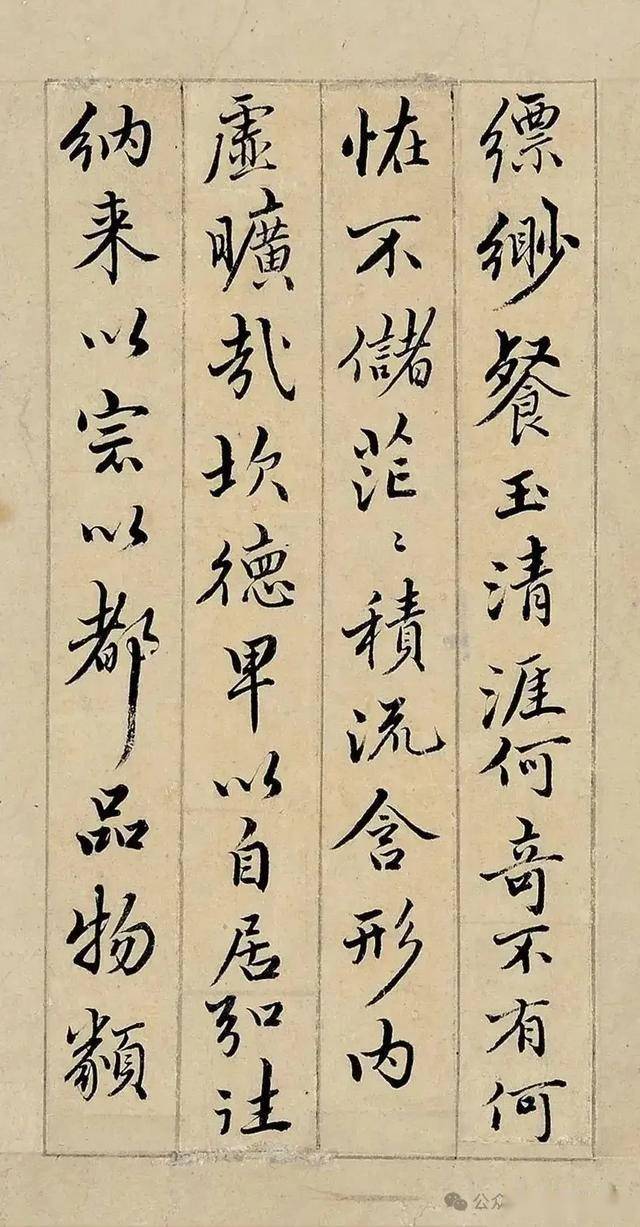 縹緲餐玉清涯何奇不有何
恠不儲茫〻積流含形内
虛曠哉坎德卑以自居弘往
納来以宗以都品物類
公众